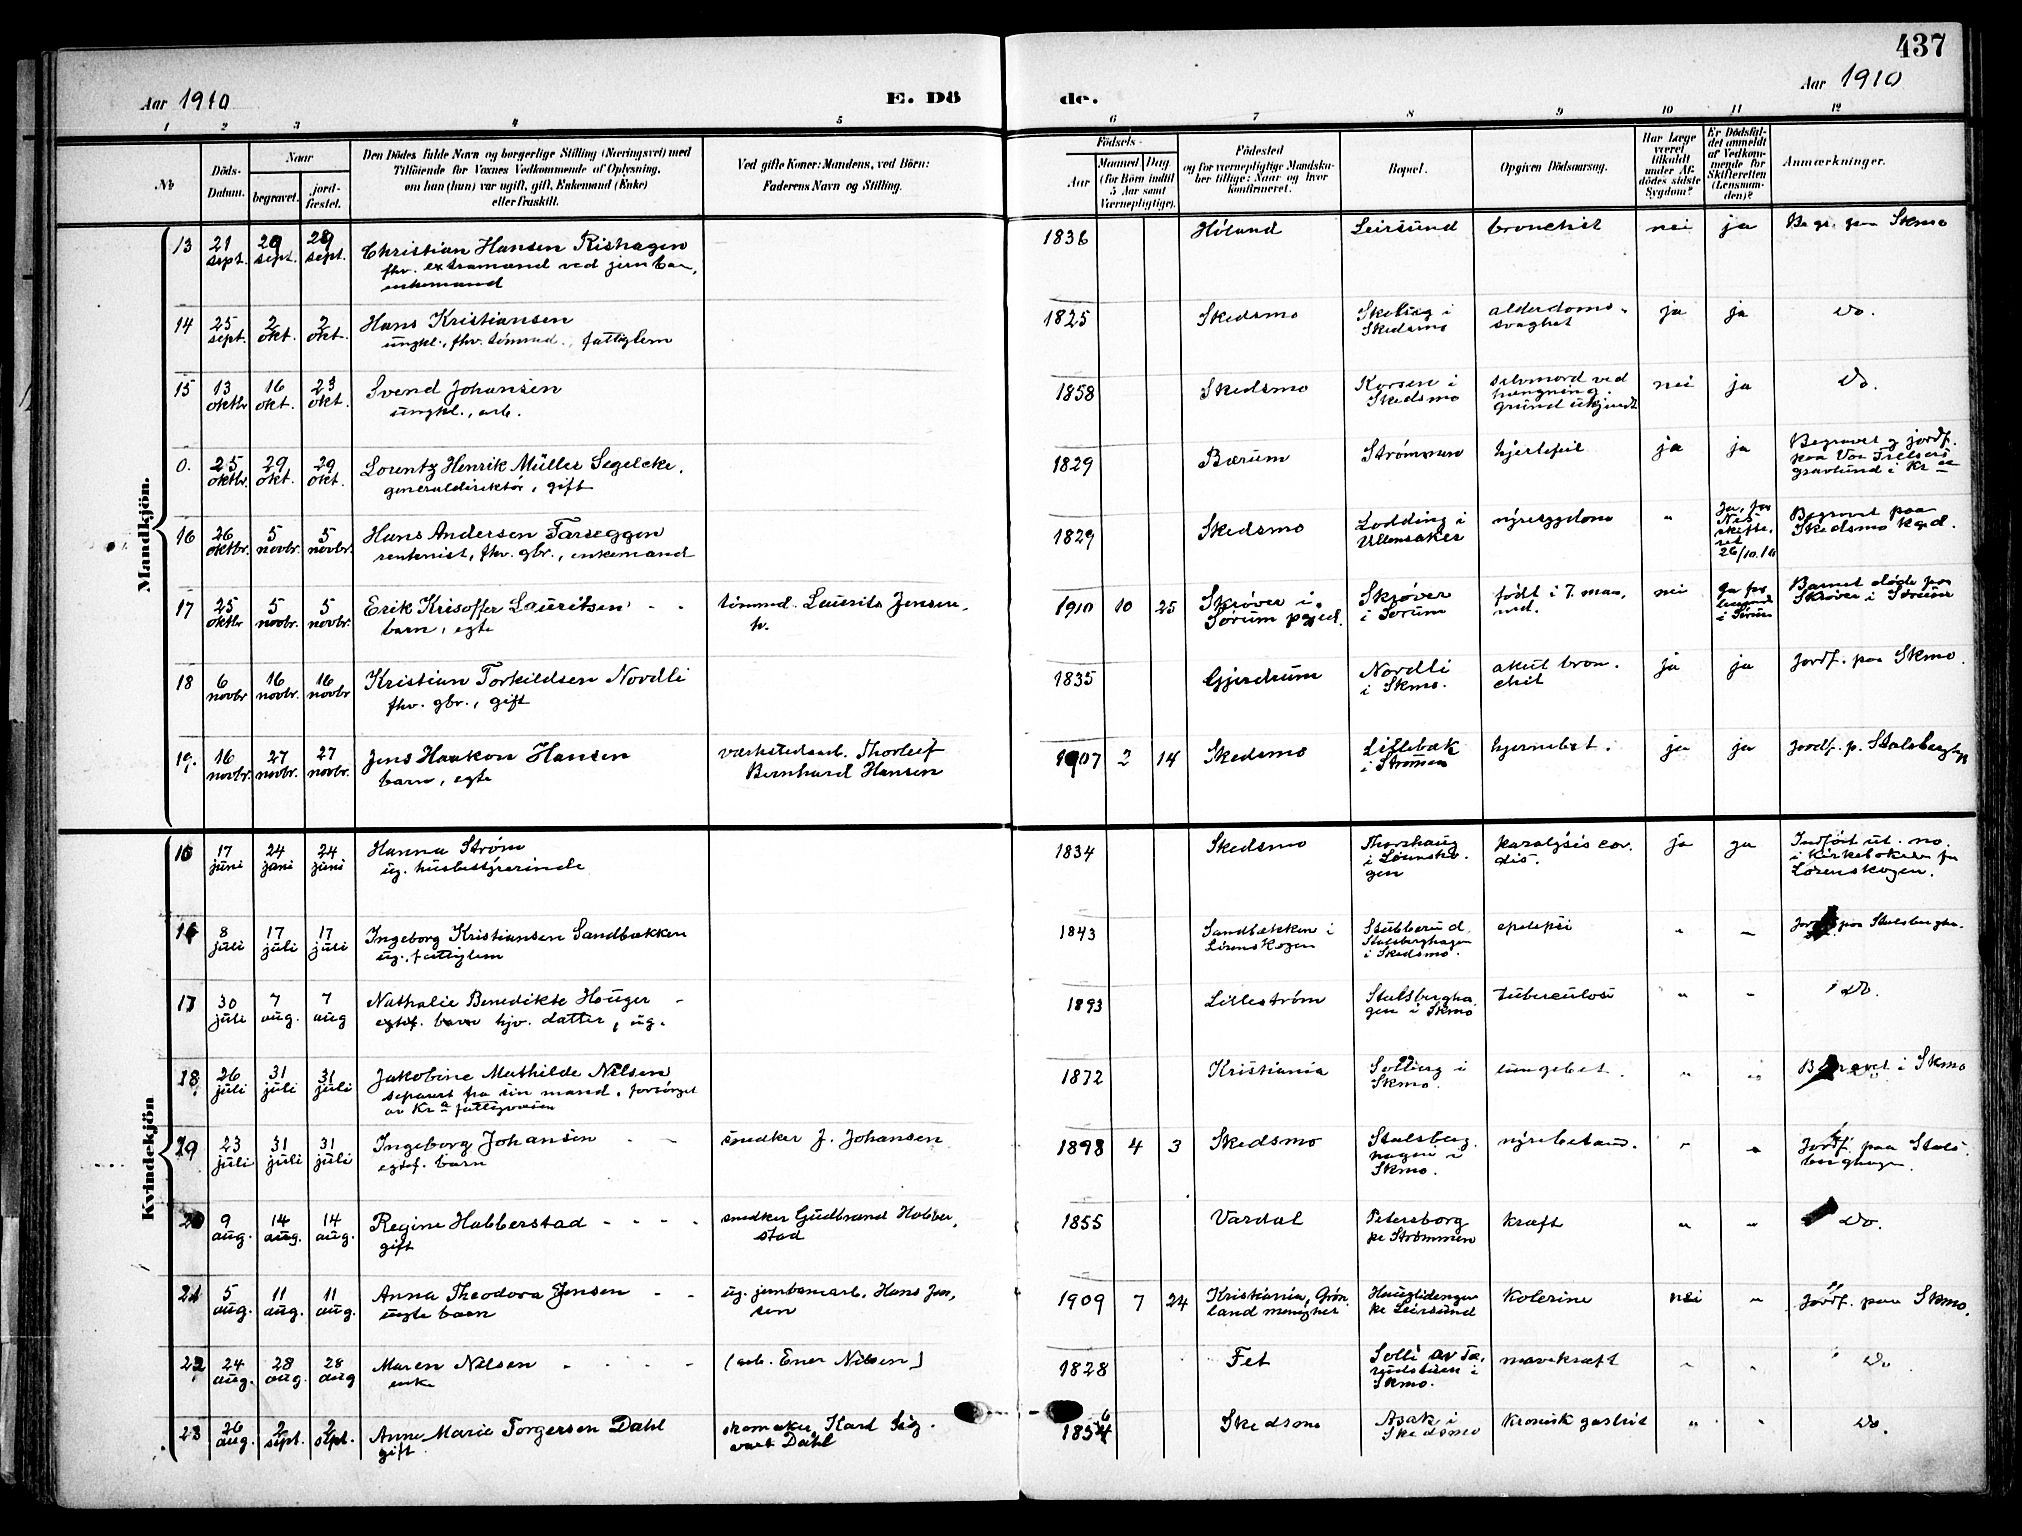 437
Aar 1910
E. Dö
de.
Aar 1910
1 2 3 4 5 6 7 8 9 10 11 12
No
Döds-Datum.
Naar
begravet.
jord-fæstet.
Den Dödes fulde Navn og borgerlige Stilling (Næringsvei) med
Tilföiende for Voxnes Vedkommende af Oplysning,
om han (hun) var ugift, gift, Enkemand (Enke)
eller fraskilt.
Ved gifte Koner: Mandens, ved Börn:
Faderens Navn og Stilling.
Födsels-
Aar
Maaned Dag
(for Börn indtil
5 Aar samt
Værnepligtige).
Födested
og for værnepligtige Mandska-
ber tillige: Naar og hvor
konfirmeret.
Bopæl.
Opgiven Dödsaarsag.
Har Læge
været
tilkaldt
under Af-
dödes sidste
Sygdom?
Er Dödsfal-
det anmeldt
af Vedkom-
mende for
Skifteretten
(Lensman-
den)?
Anmærkninger.
Mandkjön.
13 21 sept. 29 sept. 29 sept. Christian Hansen Rishagen
fhv. extramand ved jernban,
enkemand
1836 Høland Leirsund bronchit nei ja Begr. paa Skmo
14 25 sept. 2 okt. 2 okt. Hans Kristiansen
ungkl., fhv. tømmd., fattiglem
1825 Skedsmo i Skedsmo alderdoms-
svaghet ja ja Do.
15 13 oktbr 16 okt. 23 okt. Svend Johansen
ungkl., arb.
1858 Skedsmo Korsen i Skedsmo selvmord ved
hængning.
grund ukjendt nei ja Do.
0. 25 oktbr. 29 okt. 29 okt. Lorentz Henrik Müller Segelcke,
generaldirektør, gift
1829 Bærum Strømmen hjertefeil ja ja Begravet og jordf.
paa Vor Frelsers
gravlund i Kr.
16 26 oktbr. 5 novbr. 5 novbr. Hans Andersen Farseggen
rentenist, fhv. gbr., enkemand
1829 Skedsmo Lodding i Ullensaker nyresygdom " Ja, for
Nes
skifte-
ret
26/10.10 Begravet paa
Skedsmo kgd.
17 25 oktbr 5 novbr. 5 novbr. Erik Krisoffer Lauritsen - -
barn, egte
tømmd. Laurits Jensen,
h.
1910 10 25 Skrøver i
Sørum pgjed. Skrøver i Sørum født i 7. maa,
ned. nei Ja for
i Sørum Barnet døde paa
Skrøver i Sørum
18 6 novbr 16 novbr. 16 novbr Kristian Torkildsen Nordli
fhv. gbr., gift
1835 Gjerdrum Nordli i Skmo. akut bron-
chit ja ja Jordf. paa Skmo.
19. 16 novbr. 27 novbr. 27 novbr. Jens Haakon Hansen
barn, egte
værkstedsarb. Thorleif
Bernhard Hansen
1907 2 14 Skedsmo Lillebæk i Strømmen hjernebet. ja ja Jordf. p. Stalsberghg
Kvindekjön
15 17 juni 24 juni 24 juni Hanna Strøm
ug. husbestyrerinde
1834 Skedsmo Thorshaug
i Lørensko-
gen paralysis cor-
dis. ja ja Indført ut. no.
i kirkeboken for
Lørenskogen.
16 8 juli 17 juli 17 juli Ingeborg Kristiansen Sandbækken
ug., fattiglem
1843 Sandbækken i
Lørenskogen Stubberud,
Stalsberghagen
i Skedsmo. epelepsi " " Jordf. paa Stalsbergha.
17 30 juli 7 aug. 7 aug Nathalie Benedikte Houger -
egtef. barn hjv. datter, ug.
1893 Lillestrøm Stalsbergha
gen i Skmo tuberculosi " " Do.
18 26 juli 31 juli 31 juli Jakobine Mathilde Nilsen
separert fra sin mand, forsørget
av Kr.a fattigvæsen
1872 Kristiania Solberg i
Skmo. lungebet. " " Begravet i Skmo
19 23 juli 31 juli 31 juli Ingeborg Johansen - -
egtef. barn
snedker J. Johansen
1898 4 3 Skedsmo Stalsberg
hagen i
Skmo. nyrebetænd. " " Jordf. paa Stals
berghagen.
20 9 aug. 14 aug. 14 aug. Regine Habberstad - - - -
gift
snedker Gudbrand Habber,
stad
1855 Vardal Petersborg
pr Strømmen kræft " " Do.
21 5 aug. 11 aug. 11 aug. Anna Theodora Jensen - -
uegte barn
ug. jernbanearb. Hans Jen,
sen
1909 7 24 Kristiania, Grøn
land menighet pr Leirsund kolerine nei " Jordf. paa Skmo.
22 24 aug. 28 aug. 28 aug Maren Nilsen - - - -
enke
(arb. Ener Nilsen)
1828 Fet Solli av
i
Skmo. mavekræft " " Do
23 26 aug. 2 sept. 2 sept. Anne Marie Torgersen Dahl
gift
skomaker Karl Sig-
vart Dahl
1854 6 Skedsmo Asak i
Skedsmo kronisk gastrit " " Do.